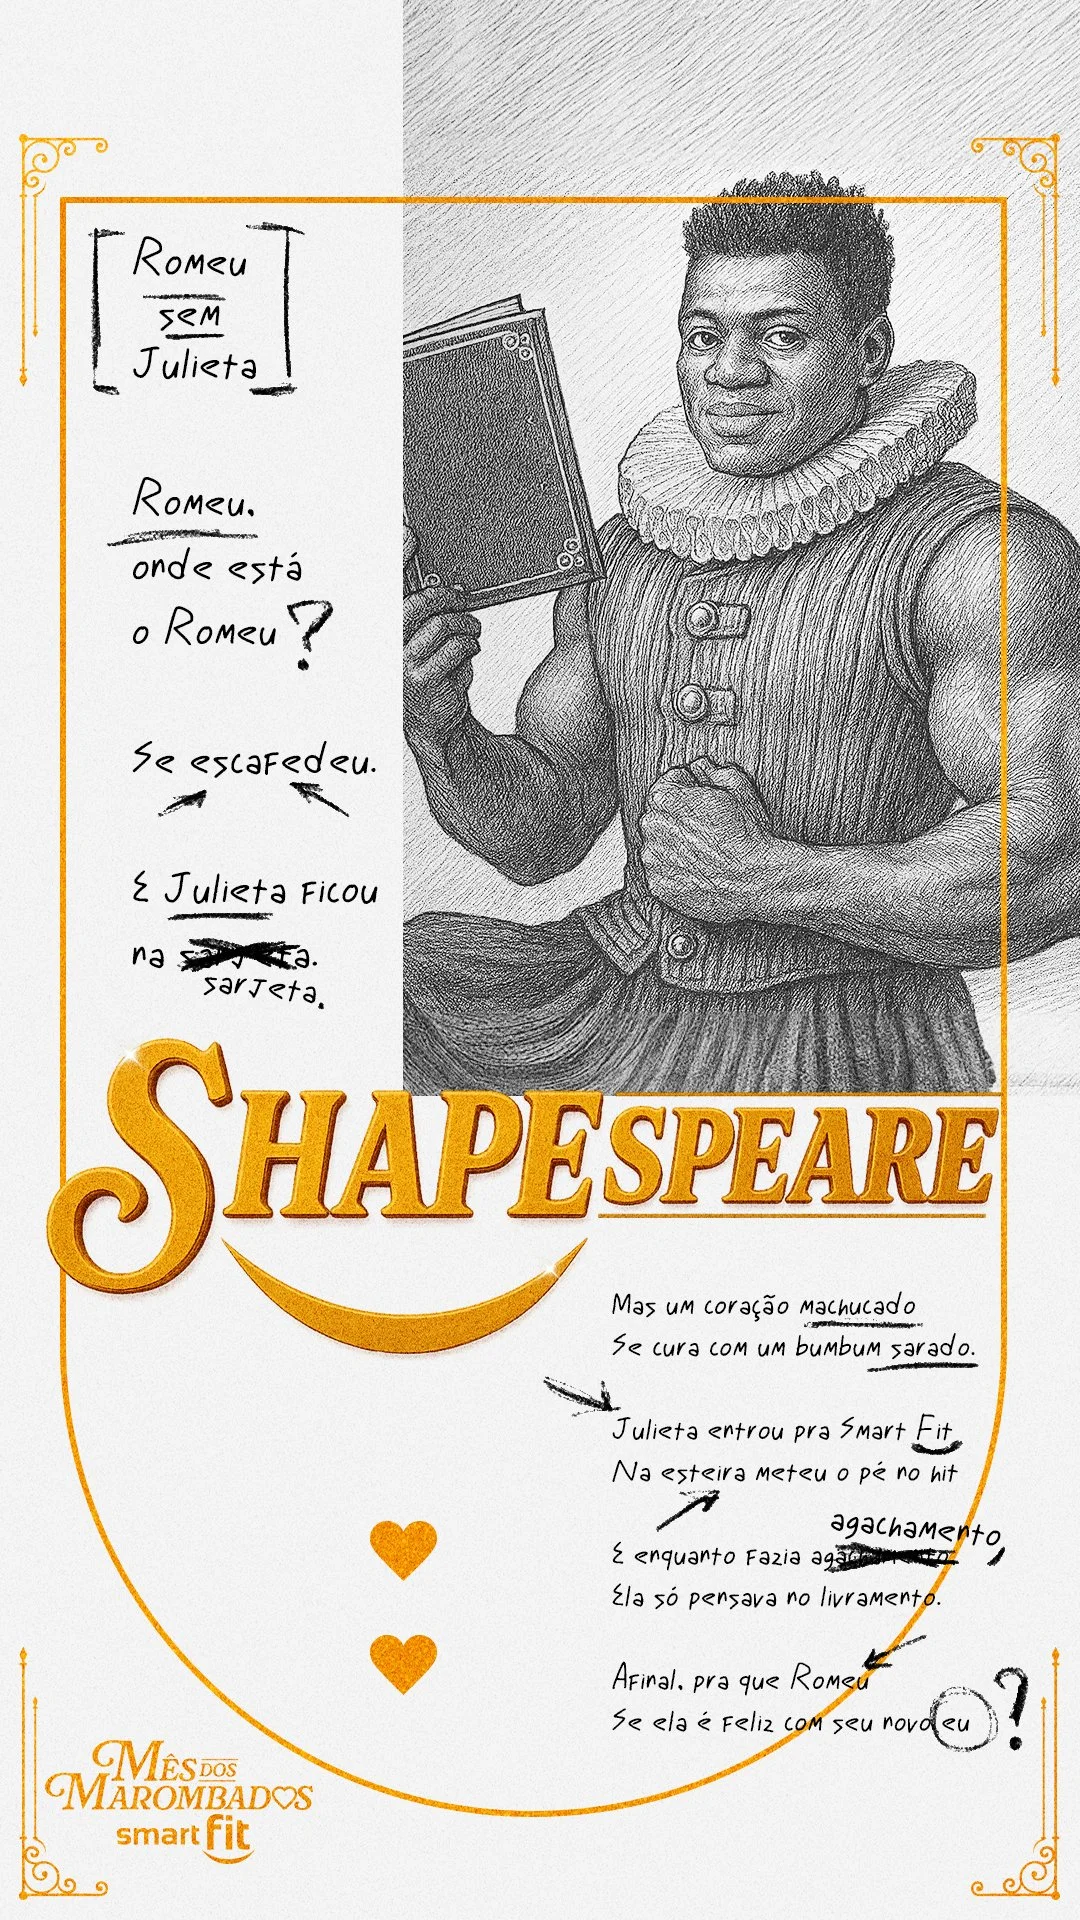 Romeu
sem
Julieta
Romeu.
onde está
o Romeu?
Se escafedeu.
E Julieta ficou
na sarjeta.
sarjeta.
SHAPESPEARE
Mas um coração machucado
Se cura com um bumbum sarado.
Julieta entrou pra Smart Fit
Na esteira meteu o pé no hit
agachamento,
E enquanto fazia agachamento
Ela só pensava no livramento.
Afinal, pra que Romeu
Se ela é feliz com seu novo eu?
MÊS DOS
MAROMBADOS
smart fit